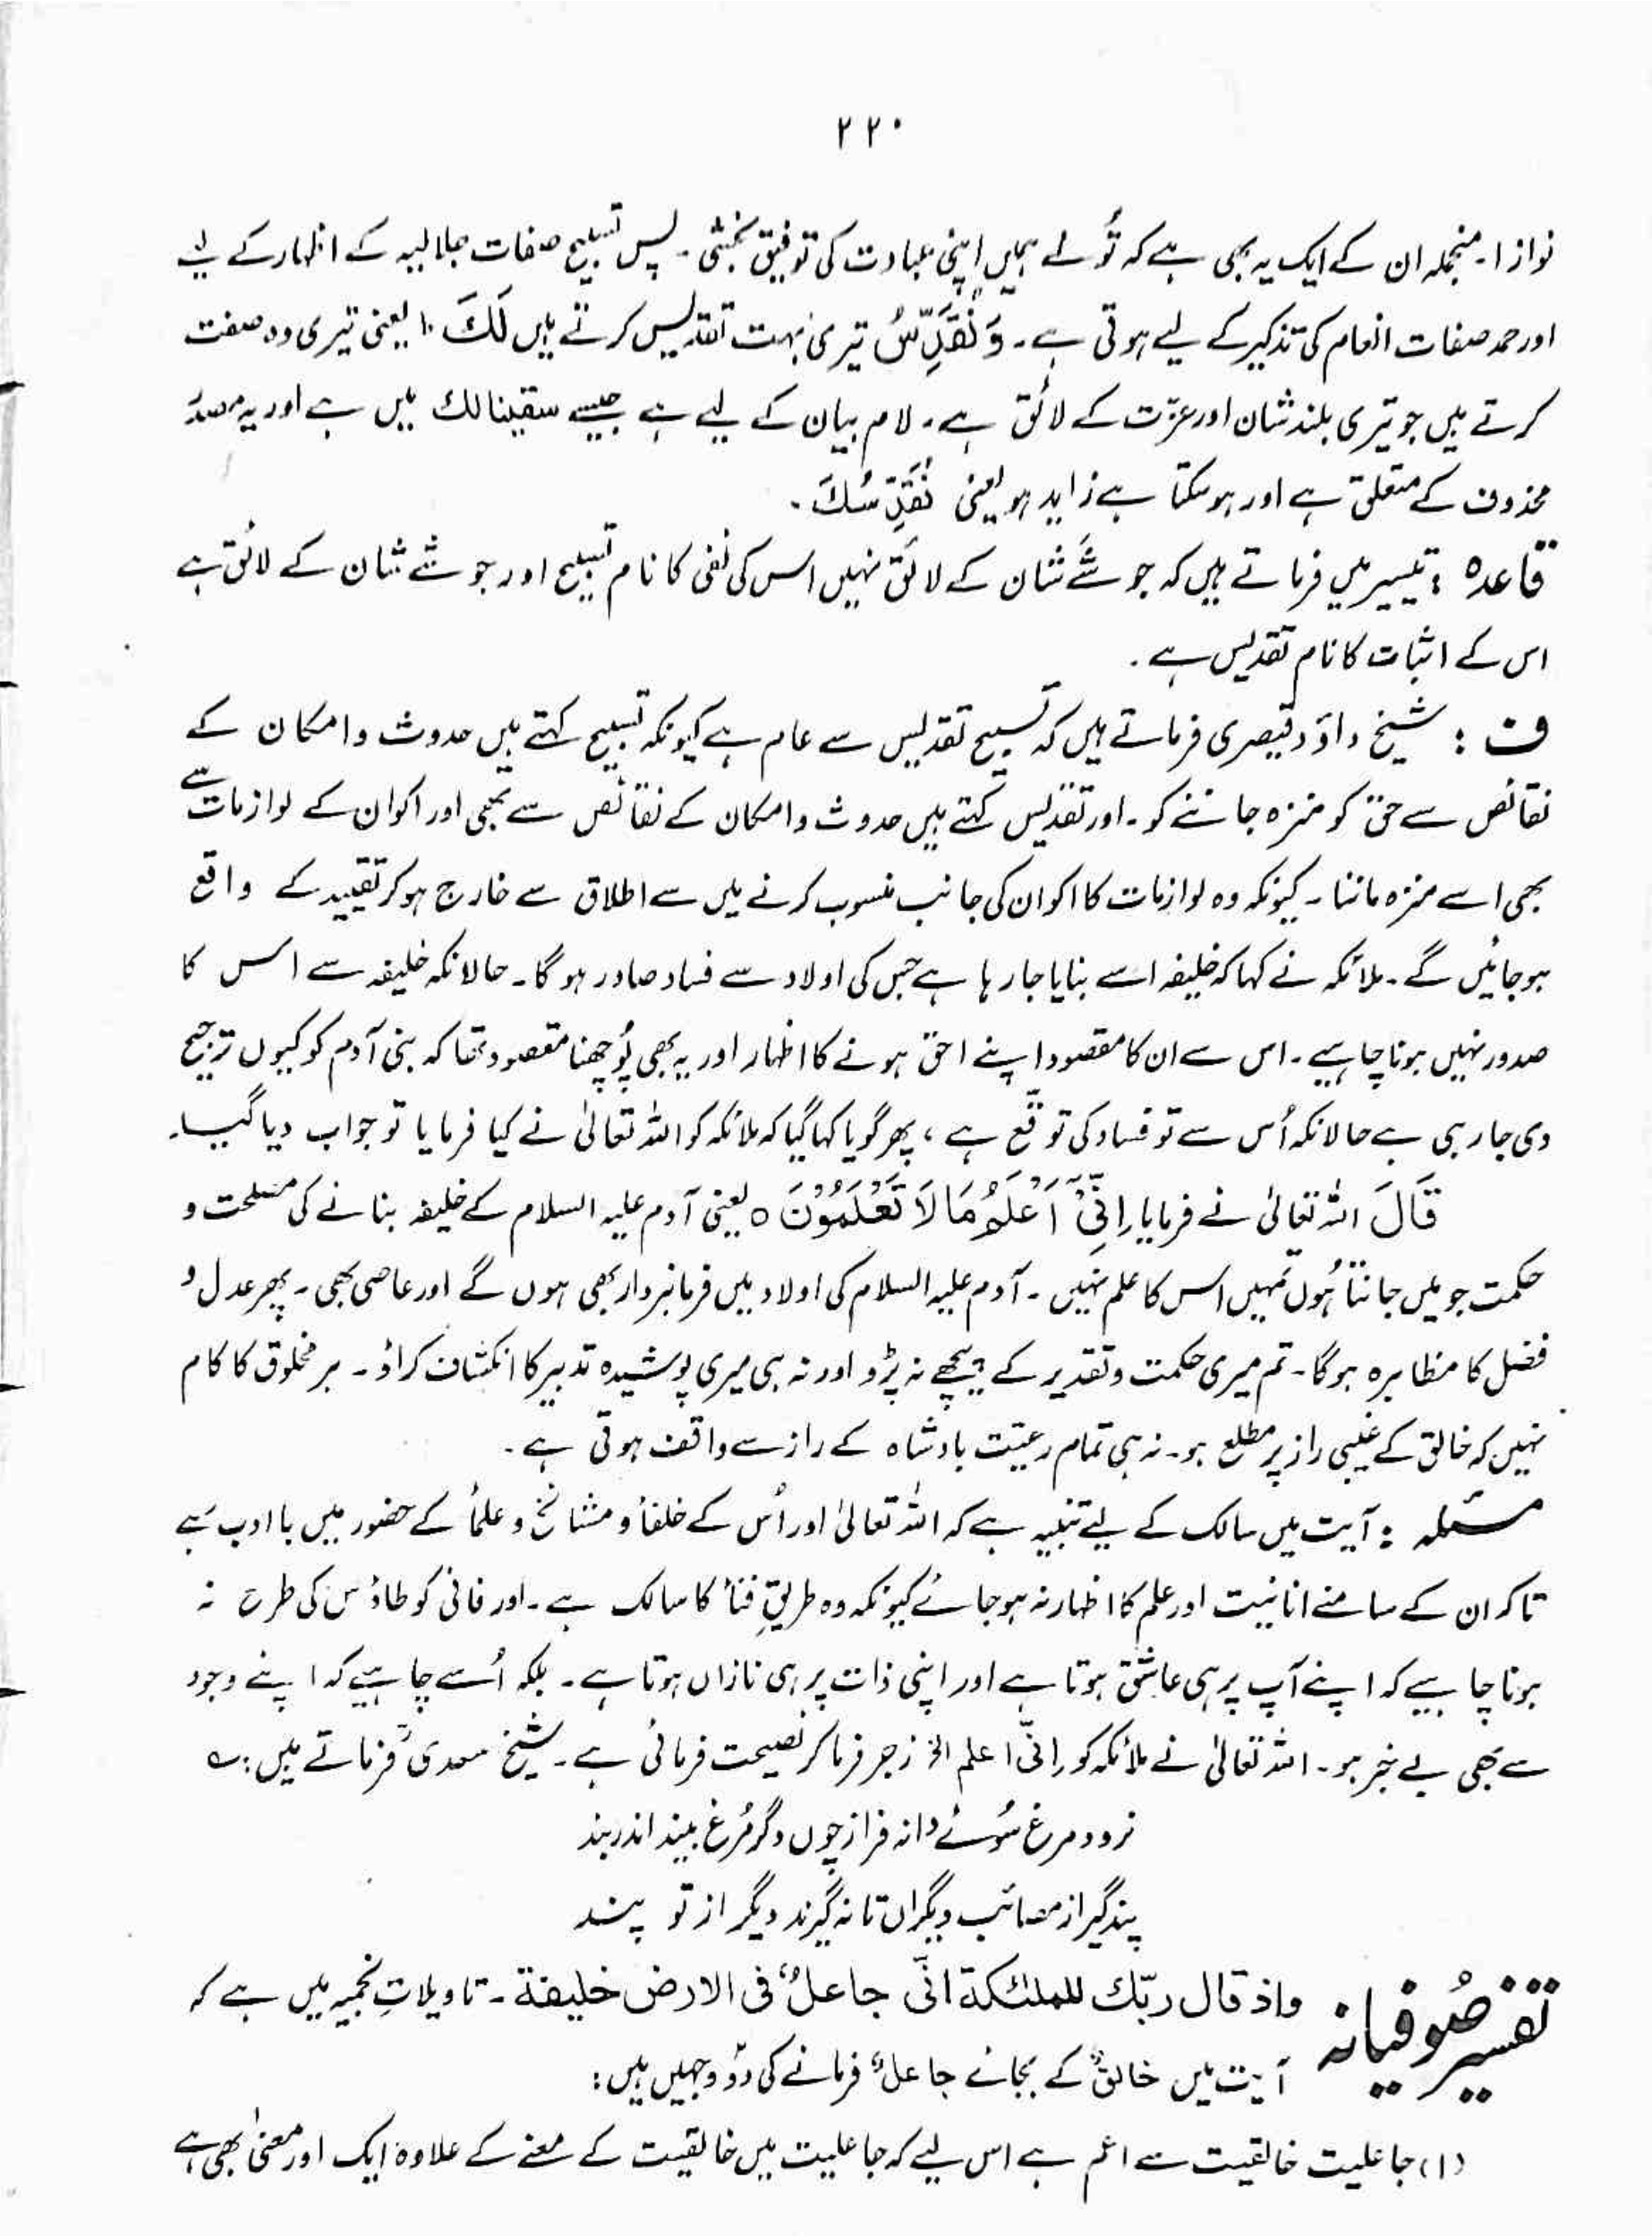 ۲۲۰
نوازا۔ منجملہ ان کے ایک یہ بھی ہے کہ تُو نے ہمیں اپنی عبادت کی توفیق بخشی۔ پس تسبیح صفات جلالیہ کے اظہار کے لیے
اور حمد صفات انعام کی تذکیر کے لیے ہوتی ہے۔ وَنُقَدِّسُ تیری بہت تقدیس کرتے ہیں لَکَ ۔ یعنی تیری وہ صفت
کرتے ہیں جو تیری بلند شان اور عزّت کے لائق ہے۔ لام بیان کے لیے ہے جیسے سقینا لك میں ہے اور یہ مصدر
محذوف کے متعلق ہے اور ہو سکتا ہے زاید ہو یعنی نُقَدِّسُكَ ۔
قاعدہ : تیسیر میں فرماتے ہیں کہ جو شَے شان کے لائق نہیں اس کی نفی کا نام تسبیح اور جو شے شان کے لائق ہے
اس کے اثبات کا نام تقدیس ہے ۔
ف : شیخ داؤد قیصری فرماتے ہیں کہ تسبیح تقدیس سے عام ہے کیونکہ تسبیح کہتے ہیں حدوث و امکان کے
نقائص سے حق کو منزہ جاننے کو۔ اور تقدیس کہتے ہیں حدوث و امکان کے نقائص سے بھی اور اکوان کے لوازمات سے
بھی اسے منزہ ماننا۔ کیونکہ وہ لوازمات کا اکوان کی جانب منسوب کرنے میں سے اطلاق سے خارج ہو کر تقیید کے واقع
ہو جائیں گے۔ ملائکہ نے کہا کہ خلیفہ اسے بنایا جا رہا ہے جس کی اولاد سے فساد صادر ہو گا۔ حالانکہ خلیفہ سے اس کا
صدور نہیں ہونا چاہیے۔ اس سے ان کا مقصود اپنے احق ہونے کا اظہار اور یہ بھی پُوچھنا مقصود تھا کہ بنی آدم کو کیوں ترجیح
دی جا رہی ہے حالانکہ اُس سے تو فساد کی توقّع ہے ، پھر گویا کہا گیا کہ ملائکہ کو اللہ تعالیٰ نے کیا فرمایا تو جواب دیا گیا۔
قَالَ اللہ تعالیٰ نے فرمایا اِنِّیْٓ اَعْلَمُ مَا لَا تَعْلَمُوْنَ ٥ یعنی آدم علیہ السلام کے خلیفہ بنانے کی مصلحت و
حکمت جو میں جانتا ہُوں تمہیں اس کا علم نہیں۔ آدم علیہ السلام کی اولاد میں فرمانبردار بھی ہوں گے اور عاصی بھی۔ پھر عدل و
فضل کا مظاہرہ ہو گا۔ تم میری حکمت و تقدیر کے پیچھے نہ پڑو اور نہ ہی میری پوشیدہ تدبیر کا انکشاف کراؤ۔ ہر مخلوق کا کام
نہیں کہ خالق کے غیبی راز پر مطلع ہو۔ نہ ہی تمام رعیّت بادشاہ کے راز سے واقف ہوتی ہے۔
مسئلہ : آیت میں سالک کے لیے تنبیہ ہے کہ اللہ تعالیٰ اور اُس کے خلفأ و مشائخ و علمأ کے حضور میں با ادب رہے
تاکہ ان کے سامنے انانیت اور علم کا اظہار نہ ہو جائے کیونکہ وہ طریقِ فنأ کا سالک ہے۔ اور فانی کو طاؤس کی طرح نہ
ہونا چاہیے کہ اپنے آپ پر ہی عاشق ہوتا ہے اور اپنی ذات پر ہی نازاں ہوتا ہے۔ بلکہ اُسے چاہیے کہ اپنے وجود
سے بھی بے خبر ہو۔ اللہ تعالیٰ نے ملائکہ کو اِنّی اعلم الخ زجر فرما کر نصیحت فرمائی ہے۔ شیخ سعدیؒ فرماتے ہیں: ؎
نرود مرغ سُوئے دانہ فراز چوں دگر مُرغ بیند اندر بند
پند گیر از مصائب دیگراں تا نہ گیرند دیگر از تو پند
تفسیر صُوفیانہ واذ قال ربّك للملٰئكة انّی جاعلٌ فی الارض خلیفة۔ تاویلاتِ نجمیہ میں ہے کہ
آیت میں خالقٌ کے بجائے جاعلٌ فرمانے کی دو وجہیں ہیں:
(۱) جاعلیت خالقیت سے اعم ہے اس لیے کہ جاعلیت میں خالقیت کے معنے کے علاوہ ایک اور معنیٰ بھی ہے